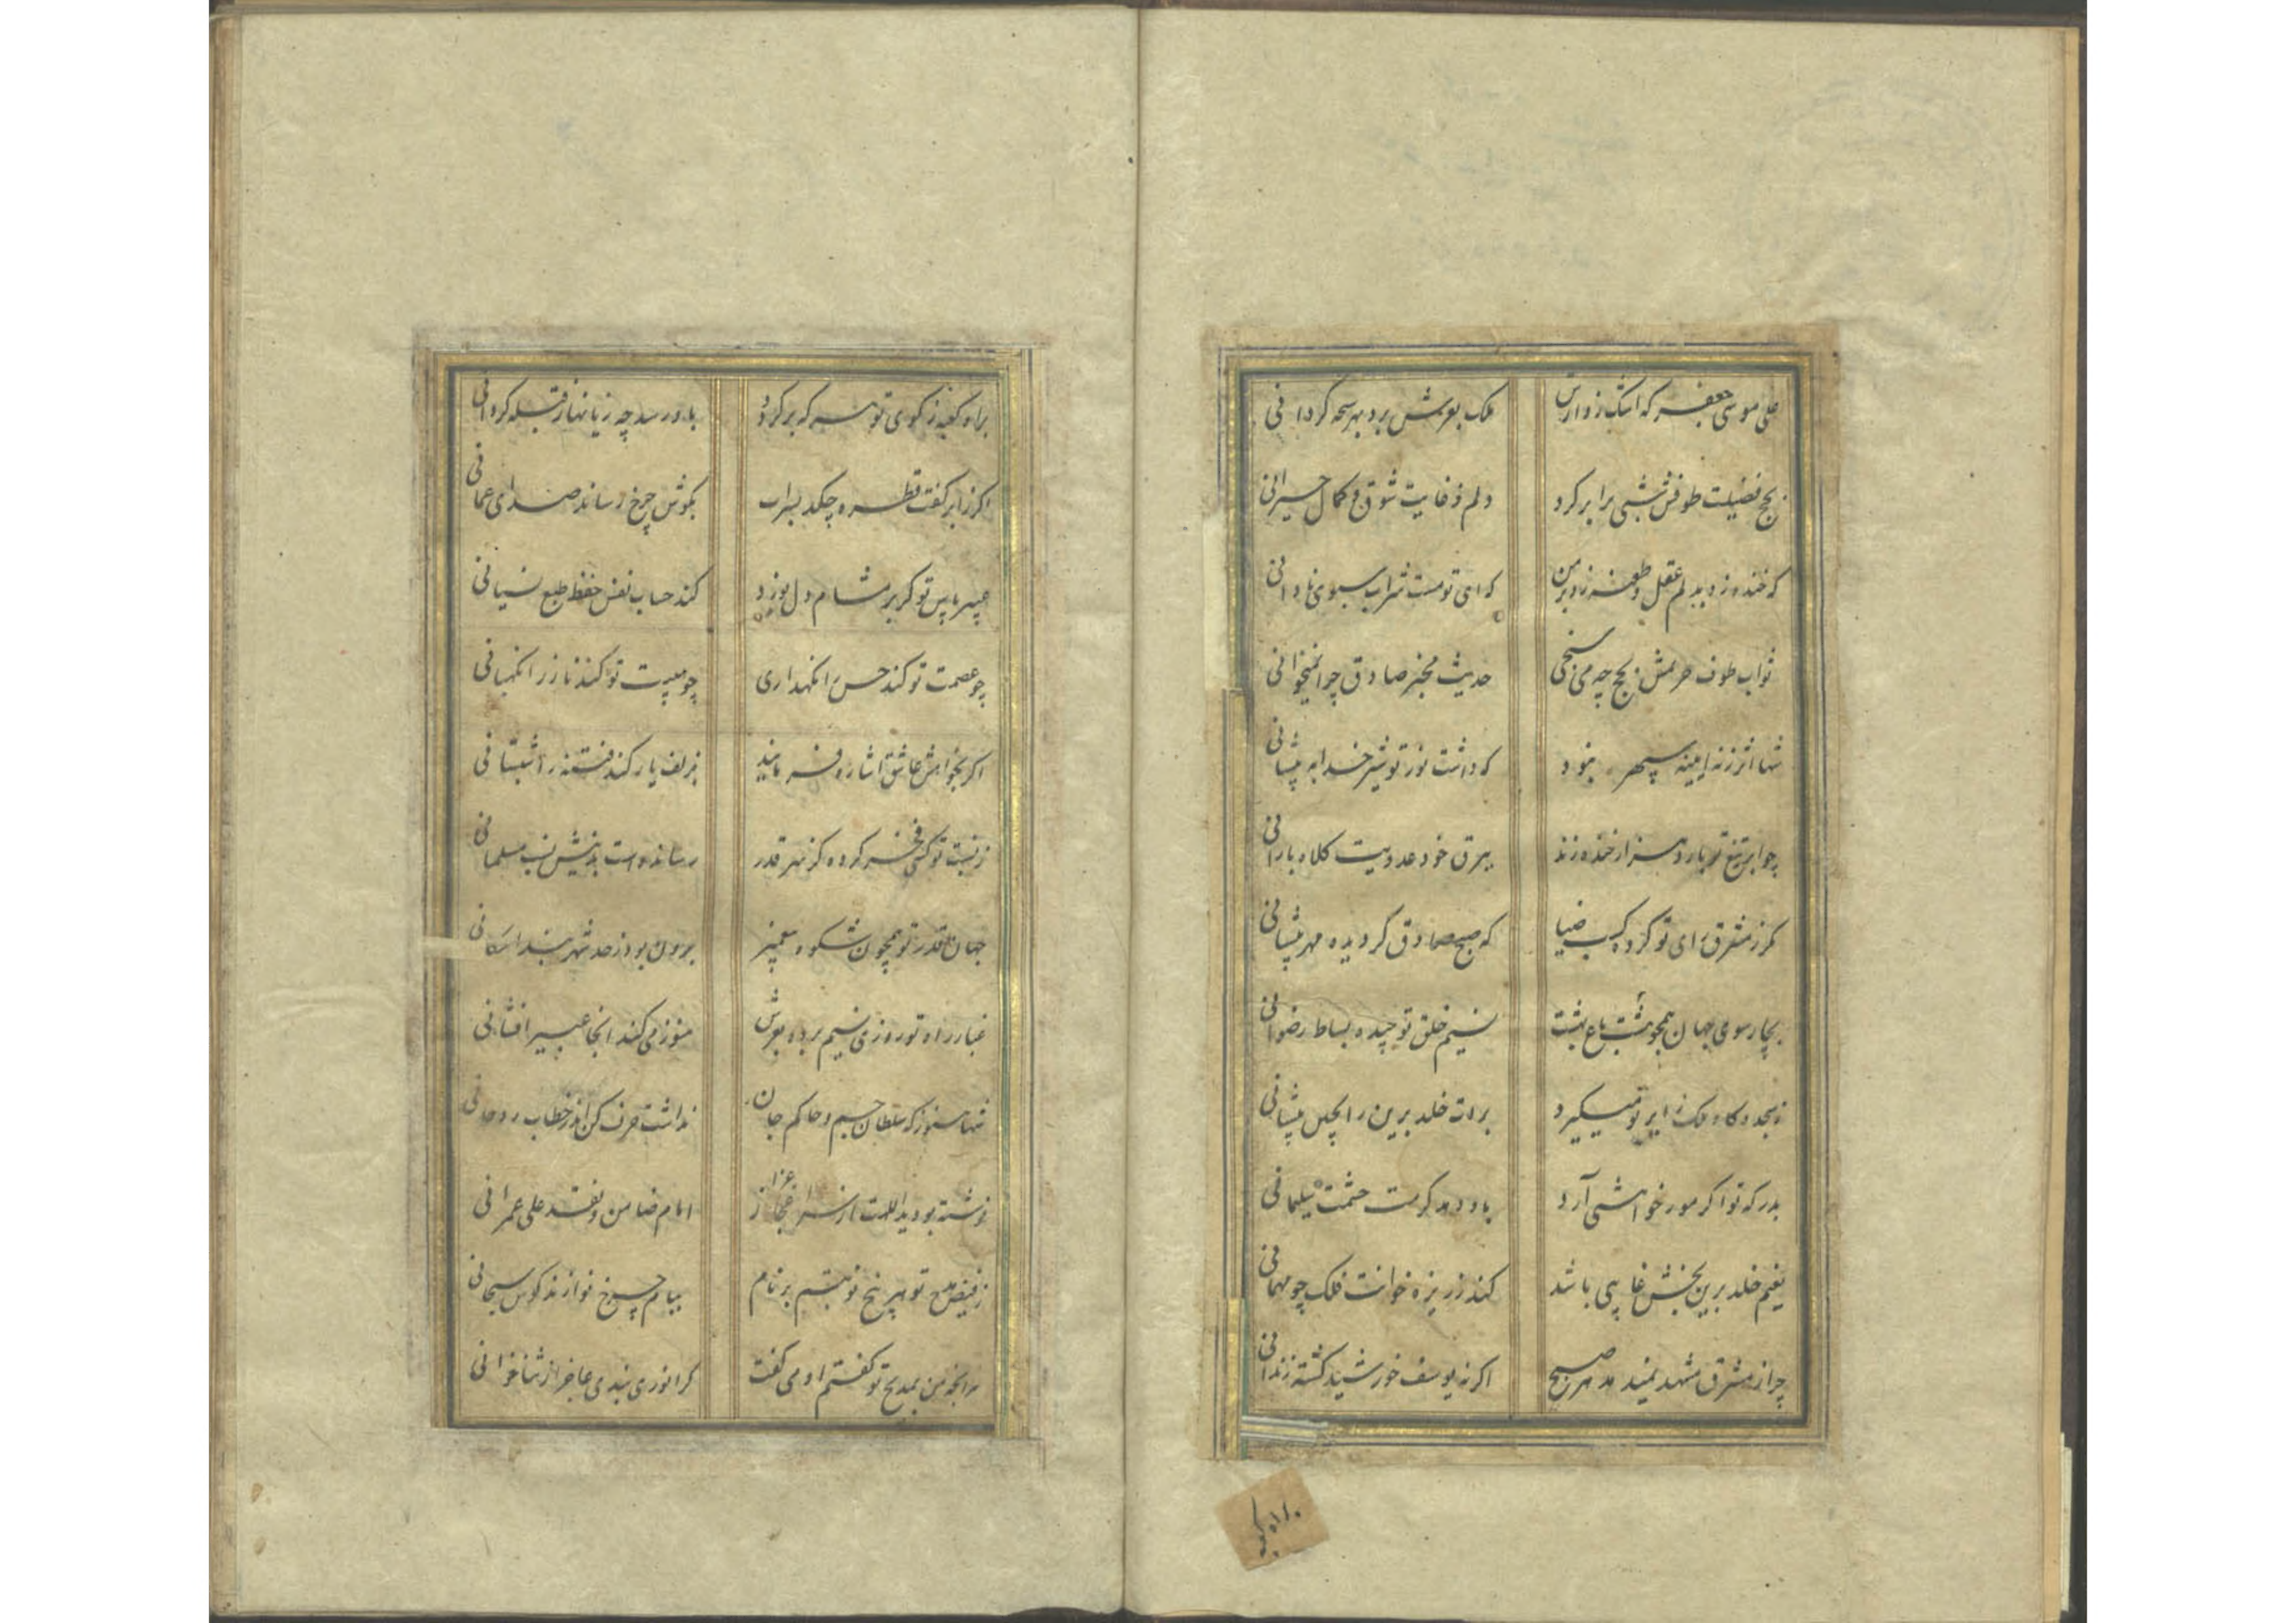 علی موسی جعفر که اشک زوارش ملک بعرش برد بهر سبحه گردانی
بحج فضیلت طوفش شبی برابر کرد دلم ز غایت شوق و کمال حیرانی
که خنده زد بدلم عقل و طعنه زد بر من که ای تو مست شراب سبوی نادانی
ثواب طوف حریمش بحج چه می سنجی حدیث مخبر صادق چرا نمیخوانی
شها اثر ز نه آیینه سپهر نبود که داشت نور تو شیر خدا به پیشانی
چو ابر تیغ تو بارد هزار خنده زند ببرق خود عدویت کلاه بارانی
مگر ز مشرق رای تو کرده کسب ضیا که صبح صادق گردیده مهر پیشانی
بچارسوی جهان همچو هشت باغ بهشت نسیم خلق تو چیده بساط رضوانی
ز سجده گاه ملک زایر تو میگیرد برات خلد برین را بچین پیشانی
بدرگه تو اگر مور خواهشی آرد باو دهد کرمت حشمت سلیمانی
نعیم خلد برین بخشش باشد کند ز ریزه خوانت فلک چو مهمانی
چرا ز مشرق مشهد نمیدمد هر صبح اگر نه یوسف خورشید گشته زندانی
براه کعبه ز کوی تو هر که برگردد باو رسد چه زیانها ز قبله گردانی
اگر ز ابر کفت قطره چکد بسراب بگوش چرخ رساند صدای عمانی
عبیر پاس تو گر بر مشام دل بوزد کند حساب نفس حفظ طبع نسیانی
چو عصمت تو کند حسن را نگهداری چو هیبت تو کند ناز را نگهبانی
اگر بخواهش عاشق اشاره فرمایید بزلف یار کند فتنه را شبستانی
ز نسبت تو کسی فخر کرده کز مهر قدر رسانده است بدینش نسب مسلمانی
جهان قدر تو همچون شکوه پیغمبر برون بود ز حد شهربند امکانی
غبار راه تو روزی نسیم برده بعرش هنوز می کند آنجا عبیر افشانی
شها هنوز که سلطان جسم و حاکم جان نداشت حرف کن اندر خطاب روحانی
نوشته بود یداللهت از سر اعجاز امام ضامن و نقد علی عمرانی
ز فیض مدح تو هر پنج نوبتم بر نام ببام چرخ نوازند کوس سبحانی
هر آنچه من بمدیح تو گفتم او می گفت گر انوری بندی عاجز از ثناخوانی
براه کعبه